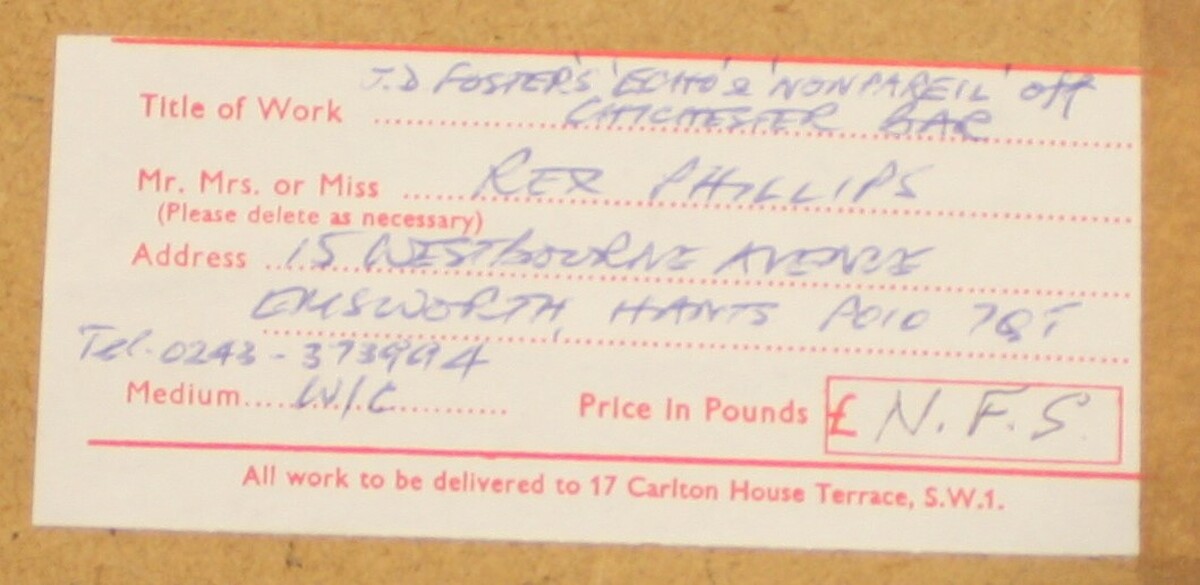 J.D FOSTER'S 'ECHO' & 'NONPAREIL' off
Title of Work CHICHESTER BAR
Mr. Mrs. or Miss REX PHILLIPS
(Please delete as necessary)
Address 15 WESTBOURNE AVENUE
EMSWORTH, HANTS PO10 7QT
Tel. 0243-373994
Medium W/C Price in Pounds £ N.F.S.
All work to be delivered to 17 Carlton House Terrace, S.W.1.